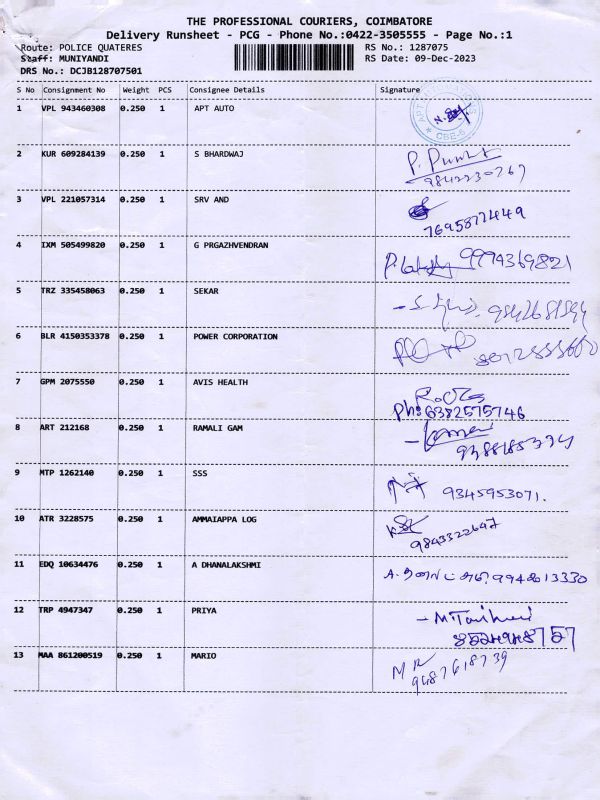 THE PROFESSIONAL COURIERS, COIMBATORE
Delivery Runsheet - PCG - Phone No.:0422-3505555 - Page No.:1
Route: POLICE QUATERES RS No.: 1287075
Staff: MUNIYANDI RS Date: 09-Dec-2023
DRS No.: DCJB128707501
S No Consignment No Weight PCS Consignee Details Signature
1 VPL 943460308 0.250 1 APT AUTO
CBE-6
2 KUR 609284139 0.250 1 S BHARDWAJ
9842230767
3 VPL 221057314 0.250 1 SRV AND
7695877449
4 IXM 505499820 0.250 1 G PRGAZHVENDRAN 9994369821
5 TRZ 335458063 0.250 1 SEKAR
6 BLR 4150353378 0.250 1 POWER CORPORATION
7 GPM 2075550 0.250 1 AVIS HEALTH
Ph: 6382575746
8 ART 212168 0.250 1 RAMALI GAM
9 MTP 1262140 0.250 1 SSS 9345953071.
10 ATR 3228575 0.250 1 AMMAIAPPA LOG
9843322647
11 EDQ 10634476 0.250 1 A DHANALAKSHMI
12 TRP 4947347 0.250 1 PRIYA
13 MAA 861200519 0.250 1 MARIO
9487618739